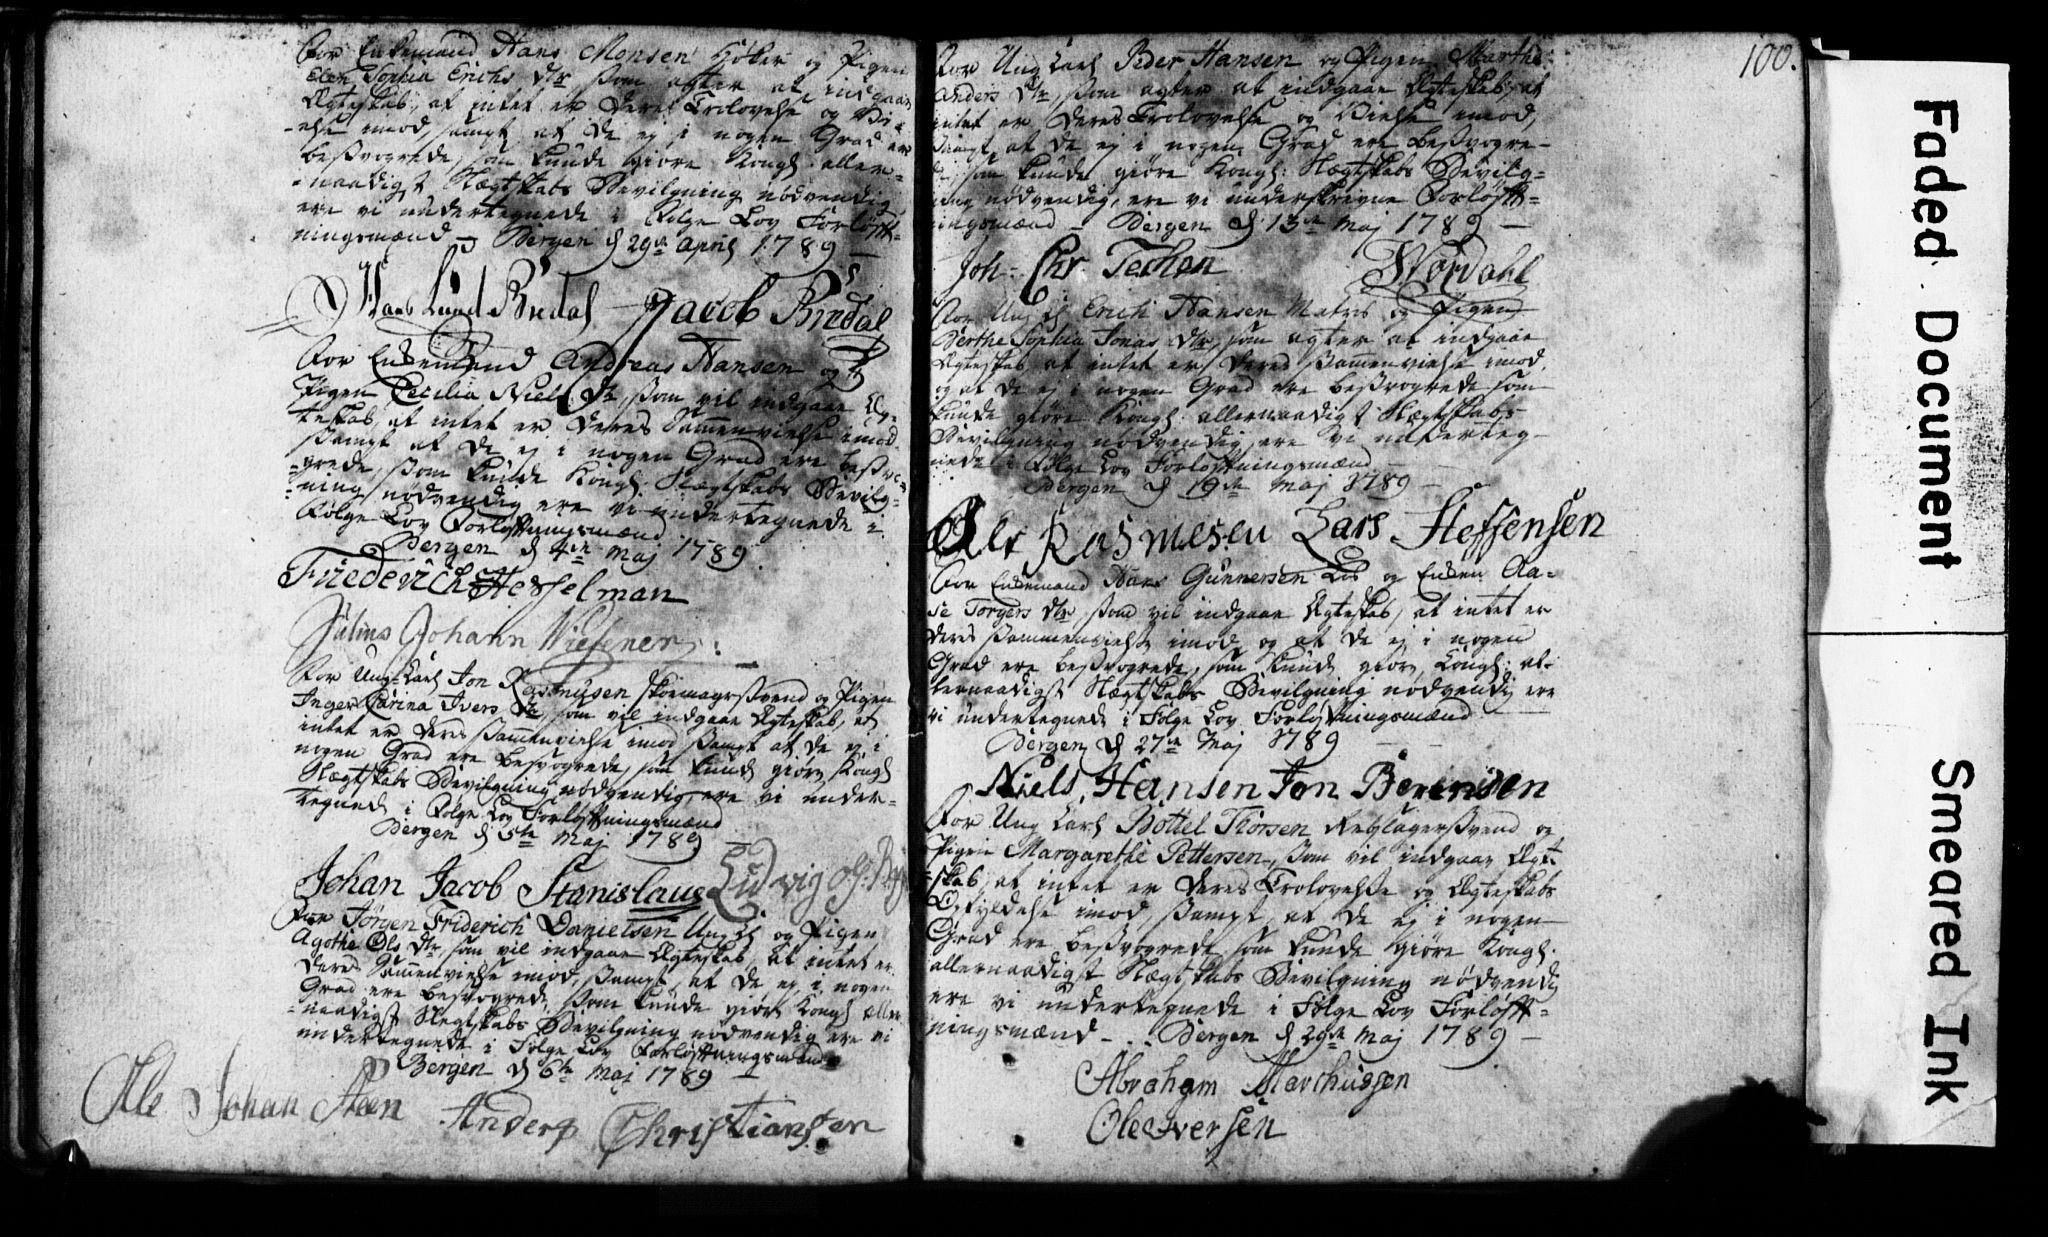 For Enkemand Hans Monsen Høker og Pigen
Elen Sophia Erichs Dtr som agter at indgaae
Ægteskab, at intet er deres Trolovelse og Vi-
else imod, samt at de ej i nogen Grad ere
besvogrede, som kunde giøre Kongl. aller-
naadigst Slægtskabs Bevilgning nødvendig
ere vi undertegnede i Følge Lov Forløft-
ningsmænd – Bergen d 29de April 1789 –
Hans Lund Bredal Jacob Bredal
For Enkemand Andreas Hansen og
Pigen Cecilia Niels Dtr, som vil indgaae Æg-
teskab, at intet er deres Sammenvielse imod
samt at de ej i nogen Grad ere besvo-
grede, som kunde Kongl. Slægtskabs Bevilg-
ning nødvendig ere vi undertegnede i
Følge Lov Forløftningsmænd
Bergen d 4de Maj 1789.
Friederich Hesselman
Julius Johann Wiesener
For Ung Karl Jon Rasmusen Skoemagersvend og Pigen
Inger Carina Ivers Dtr, som vil indgaae Ægteskab, at
intet er deres Sammenvielse imod samt at de ej i
nogen Grad ere besvogrede, som kunde giøre Kongl
Slægtskabs Bevilgning nødvendig, ere vi under-
tegnede i Følge Lov Forløftningsmænd
Bergen d 5te Maj 1789 –
Johan Jacob Stanislaus Ludvig
For Jørgen Friderich Danielsen Ung Kl og Pigen
Agothe Ols Dtr som vil indgaae Ægteskab, at intet er
deres Sammenvielse imod, samt at de ej i nogen
Grad ere besvogrede, som kunde giøre Kongl aller-
naadigst Slegtskabs Bevilgning nødvendig ere vi
undertegnede i Følge Lov Forløftningsmænd
Bergen d 6te Maj 1789 –
Ole Johan Steen Anders Christiansen
100.
For Ung Karl Peder Hansen og Pigen Marthe
Anders Dtr, som agter at indgaae Ægteskab, at
intet er deres Trolovelse og Vielse imod,
samt at de ej i nogen Grad ere besvogre-
de, som kunde giøre Kongl: Slægtskabs Bevilg-
ning nødvendig, ere vi underskrevne Forløft-
ningsmænd – Bergen d 13de Maj 1789 –
Joh: Chr Techen Wordahl
For Ung Kl Erich Hansen Matros og Pigen
Berthe Sophia Jonas Dtr, som agter at indgaae
Ægteskab at intet er deres Sammenvielse imod,
og at de ej i nogen Grad ere besvogrede som
kunde giøre Kongl: allernaadigst Slægtskabs
Bevilgning nødvendig, ere vi underteg-
nede i Følge Lov Forløftningsmænd –
Bergen d 19de Maj 1789 –
Ole Rasmusen Lars Steffensen
For Enkemand Hans Gunnersen Los og Enken Aa-
se Torgers Dtr, som vil indgaae Ægteskab, at intet er
deres Sammenvielse imod, og at de ej i nogen
Grad ere besvogrede, som kunde giøre Kongl: al-
lernaadigst Slægtskabs Bevilgning nødvendig ere
vi undertegnede i Følge Lov Forløftningsmænd
Bergen d 27de Maj 1789 –
Niels Hansen Jon Berentsen
For Ung Karl Bottel Thorsen Rebslagersvend og
Pigen Margarethe Pettersen, som vil indgaae Ægte-
skab, at intet er deres Trolovelse og Ægteskabs
Opfyldelse imod, samt at de ej i nogen
Grad ere besvogrede som kunde giøre Kongl.
allernaadigst Slægtskabs Bevilgning nødvendig
ere vi undertegnede i Følge Lov Forløft-
ningsmænd – Bergen d 29de Maj 1789 –
Abraham Marchussen
Ole Iversen
Faded Document
Smeared Ink